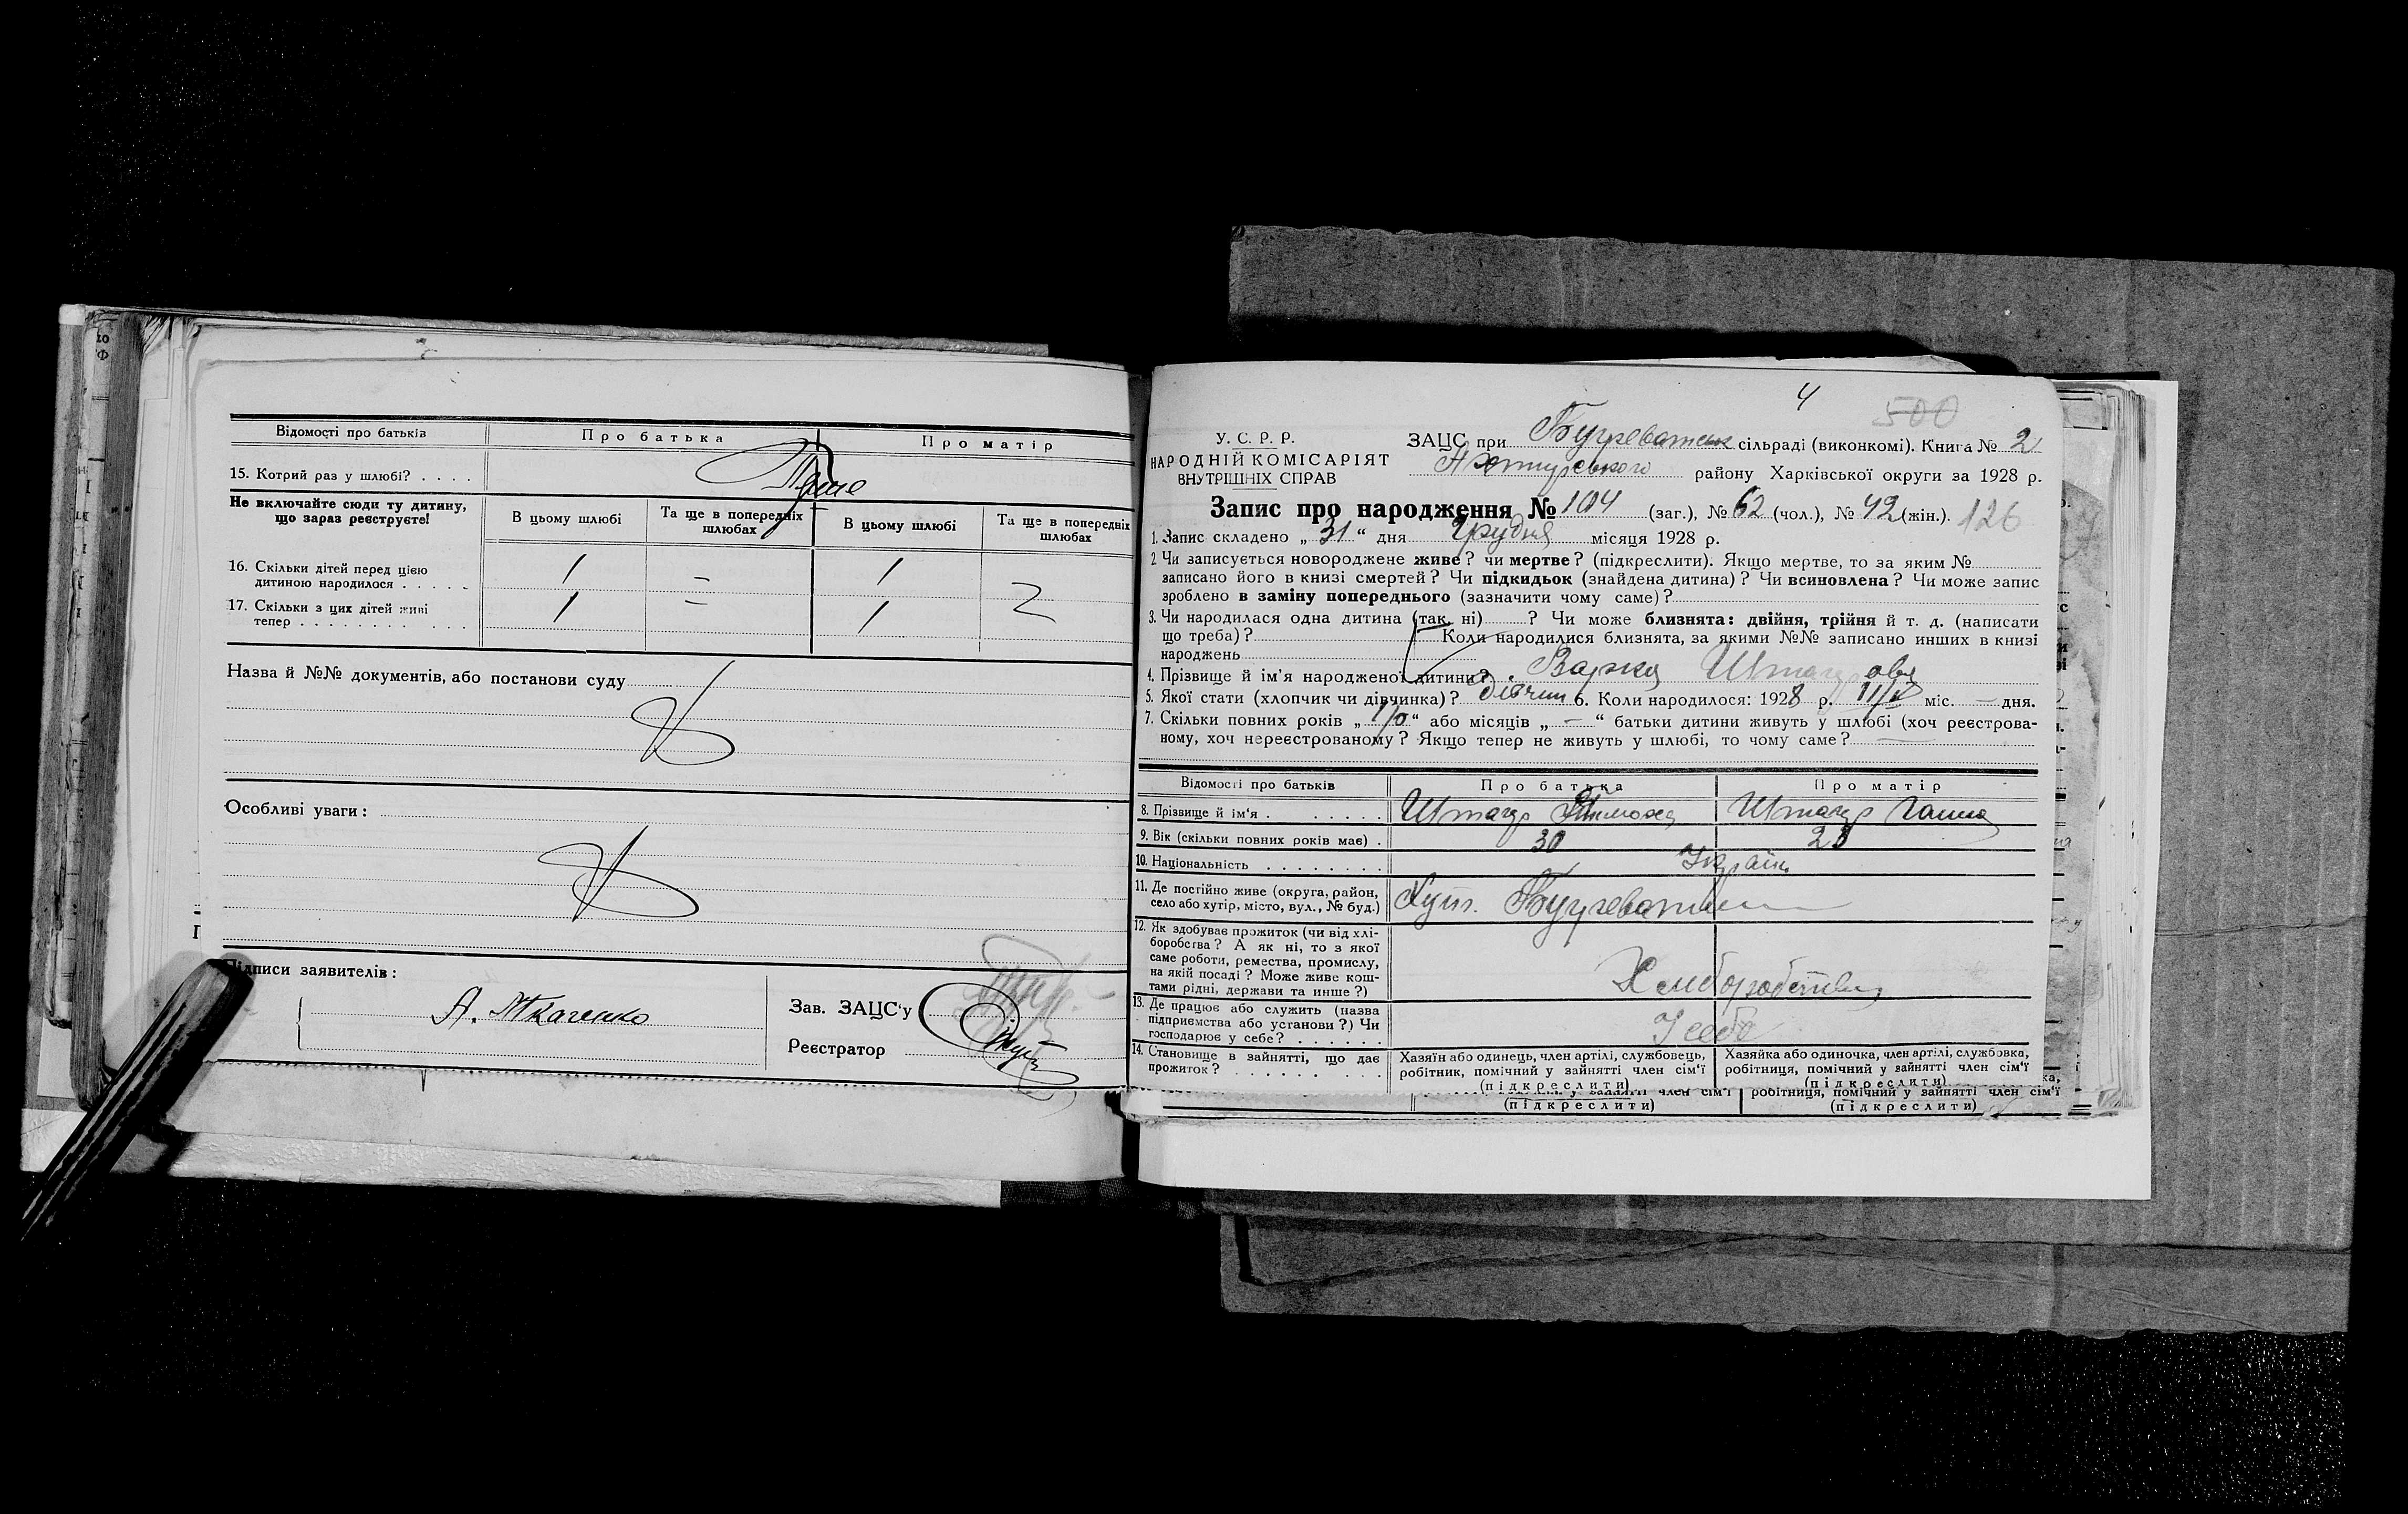 Відомості про батьків
Про батька
Про матір
15. Котрий раз у шлюбі? . . . .
Перше
Не включайте сюди ту дитину, що зараз реєструєте!
В цьому шлюбі
Та ще в попередніх шлюбах
В цьому шлюбі
Та ще в попередніх шлюбах
16. Скільки дітей перед цією
дитиною народилося . . . . .
1 = 1
17. Скільки з цих дітей живі
тепер . . . . . . . . . . . .
1 = 1
Назва й №№ документів, або постанови суду
Особливі уваги:
Підписи заявителів:
А. Ткаченко
Зав. ЗАЦС'у
Реєстратор
4
500
У. С. Р. Р.
НАРОДНІЙ КОМІСАРІЯТ
ВНУТРІШНІХ СПРАВ
ЗАЦС при Бугреватськ сільраді (виконкомі). Книга № 2
Охтирського району Харківської округи за 1928 р.
Запис про народження № 104 (заг.), № 62 (чол.), № 42 (жін.). 126
1. Запис складено „ 31 “ дня Грудня місяця 1928 р.
2. Чи записується новороджене живе? чи мертве? (підкреслити). Якщо мертве, то за яким №
записано його в книзі смертей? Чи підкидьок (знайдена дитина)? Чи всиновлена? Чи може запис
зроблено в заміну попереднього (зазначити чому саме)?
3. Чи народилася одна дитина (так, ні) ? Чи може близнята: двійня, трійня й т. д. (написати
що треба)? Коли народилися близнята, за якими №№ записано инших в книзі
народжень
4. Прізвище й ім'я народженої дитини? Варка
5. Якої стати (хлопчик чи дівчинка)? дівчин 6. Коли народилося: 1928 р. міс. — дня.
7. Скільки повних років „ “ або місяців „ — “ батьки дитини живуть у шлюбі (хоч реєстрова-
ному, хоч нереєстрованому? Якщо тепер не живуть у шлюбі, то чому саме?
Відомості про батьків
Про батька
Про матір
8. Прізвище й ім'я . . . . . .
Штагер Тимоха
Штагер Ганна
9. Вік (скільки повних років має) .
30
10. Національність . . . . . . . .
Україн.
11. Де постійно живе (округа, район,
село або хутір, місто, вул., № буд.)
Хут. Бугреват
12. Як здобуває прожиток (чи від хлі-
боробства? А як ні, то з якої
саме роботи, ремества, промислу,
на якій посаді? Може живе кош-
тами рідні, держави та инше?)
Хліборобство
13. Де працює або служить (назва
підприємства або установи?) Чи
господарює у себе? . . . . . .
У себе
14. Становище в зайнятті, що дає
прожиток? . . . . . . . . . .
Хазяїн або одинець, член артілі, службовець,
робітник, помічний у зайнятті член сім'ї
(підкреслити)
Хазяйка або одиночка, член артілі, службовка,
робітниця, помічний у зайнятті член сім'ї
(підкреслити)
робітниця, помічний у зайнятті член сім'ї
(підкреслити)
(підкреслити)